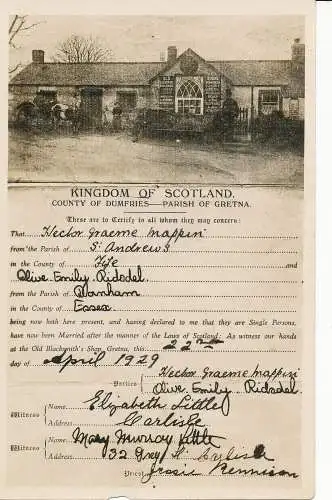 KINGDOM OF SCOTLAND.
COUNTY OF DUMFRIES—PARISH OF GRETNA.
These are to Certify to all whom they may concern:
That Hector Graeme Mappin
from the Parish of St Andrews
in the County of Fife and
Olive Emily Ridsdel
from the Parish of
in the County of Essex
being now both here present, and having declared to me that they are Single Persons,
have now been Married after the manner of the Laws of Scotland: As witness our hands
at the Old Blacksmith's Shop, Gretna, this 22nd
day of April 1929
Parties Hector Graeme Mappin
Olive Emily Ridsdel
Witness Name Elizabeth Little
Address Carlisle
Witness Name Mary Murray Little
Address 32, St Carlisle
Priest Jessie Rennison